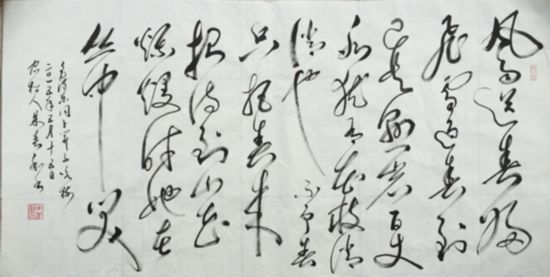 風雨送春歸
飛雪迎春到
已是懸崖百丈
冰犹有花枝俏
俏也不争春
只把春来
报待到山花
爛熳时她在
丛中笑
毛泽东词卜算子咏梅
二〇一五年五月十五日